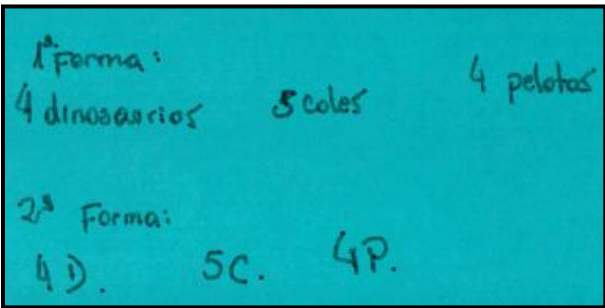 1ª Forma:
4 dinosaurios 5 coles 4 pelotas
2ª Forma:
4 D. 5C. 4P.